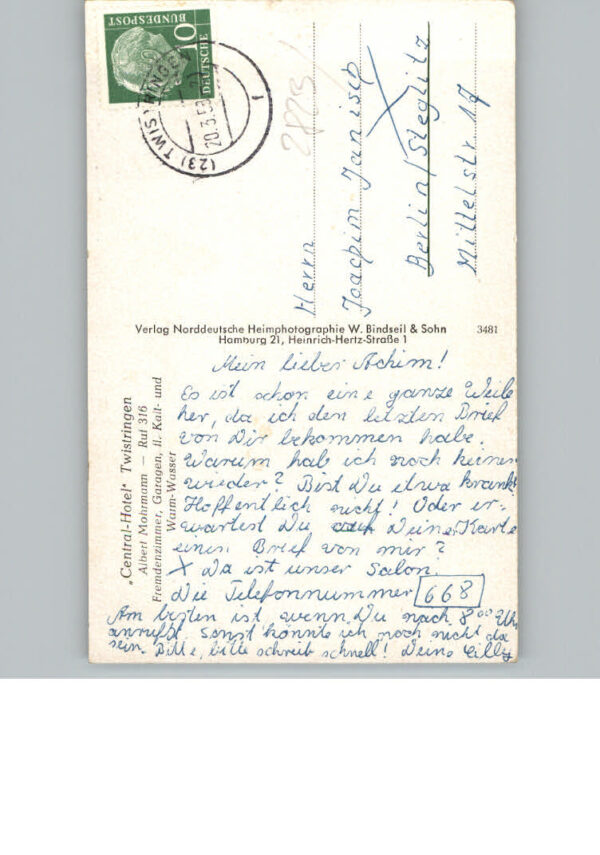 DEUTSCHE
BUNDESPOST
10
(23) TWISTRINGEN
20.3.59
1
2823
Herrn
Joachim Janisch
Berlin/Steglitz
Mittelstr. 17
Verlag Norddeutsche Heimphotographie W. Bindseil & Sohn 3481
Hamburg 21, Heinrich-Hertz-Straße 1
„Central-Hotel“ Twistringen
Albert Mohrmann — Ruf 316
Fremdenzimmer, Garagen, fl. Kalt- und
Warm-Wasser
Mein lieber Achim!
Es ist schon eine ganze Weile
her, da ich den letzten Brief
von Dir bekommen habe.
Warum hab ich noch keinen
wieder? Bist Du etwa krank?
Hoffentlich nicht! Oder er-
wartest Du Deiner Karte
einen Brief von mir?
X Da ist unser Salon.
Die Telefonnummer 668
Am besten ist wenn Du nach 8⁰⁰ Uhr
anrufst, sonst könnte ich noch nicht da
sein. Bitte, bitte schreib schnell! Deine Cilly